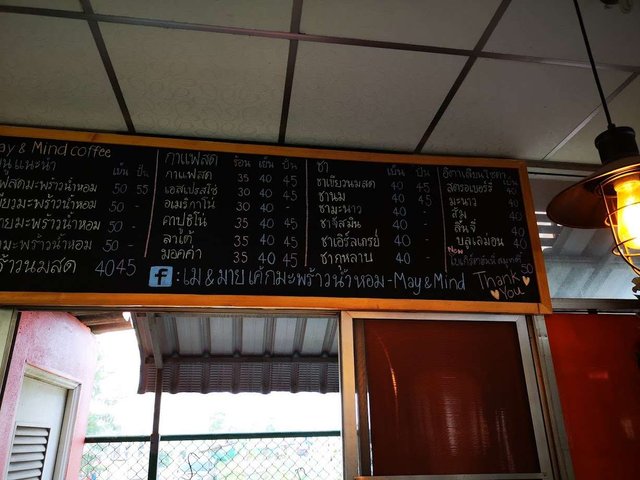 ay & Mind coffee
นูแนะนำ เย็น ปั่น
ฟสดมะพร้าวน้ำหอม 50 55
มะพร้าวน้ำหอม 50 -
ายมะพร้าวน้ำหอม 50 -
ามะพร้าวน้ำหอม 50 -
ร้าวนมสด 40 45
กาแฟสด ร้อน เย็น ปั่น
กาแฟสด 35 40 45
เอสเปรสโซ่ 35 40 45
อเมริกาโน่ 30 40 -
คาปูชิโน่ 35 40 45
ลาเต้ 35 40 45
มอคค่า 35 40 45
ชา เย็น ปั่น
ชาเขียวนมสด 40 45
ชานม 40 45
ชามะนาว 40 -
ชาจัสมิน 40 -
ชาเอิร์ลเกรย์ 40 -
ชากุหลาบ 40 -
อิตาเลียนโซดา
สตรอเบอร์รี่ 40
มะนาว 40
ส้ม 40
ลิ้นจี่ 40
บลูเลม่อน 40
New
50
f : เม & มายเค้กมะพร้าวน้ำหอม - May & Mind
Thank You